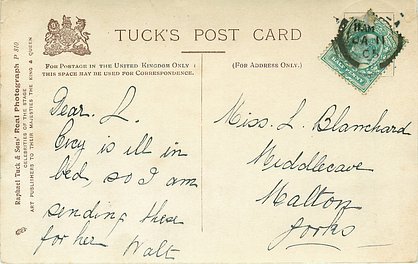 TUCK'S POST CARD
FOR POSTAGE IN THE UNITED KINGDOM ONLY
THIS SPACE MAY BE USED FOR CORRESPONDENCE.
(FOR ADDRESS ONLY.)
Raphael Tuck & Sons' Real Photograph P 810
CELEBRITIES OF THE STAGE
ART PUBLISHERS TO THEIR MAJESTIES THE KING & QUEEN
Dear. L.
Cecy is ill in
bed, so I am
sending these
for her Walt
Miss. L. Blanchard
Middlecave
Malton
Yorks